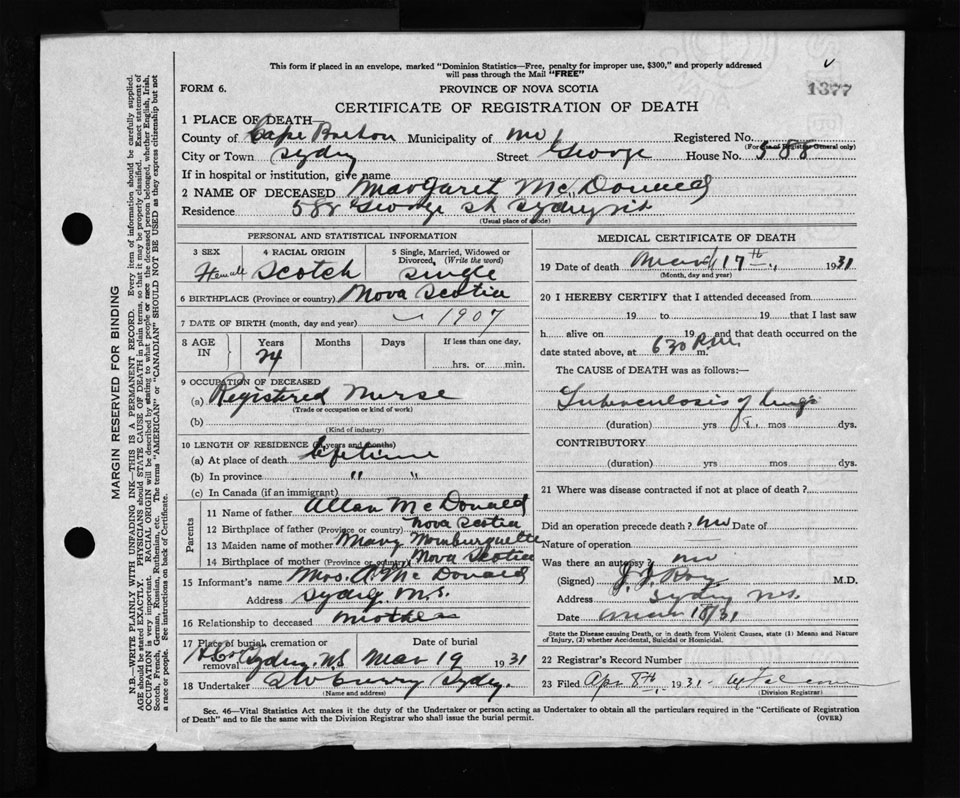 This form if placed in an envelope, marked "Dominion Statistics—Free, penalty for improper use, $300," and properly addressed
will pass through the Mail "FREE"
FORM 6.
PROVINCE OF NOVA SCOTIA
1377
CERTIFICATE OF REGISTRATION OF DEATH
1 PLACE OF DEATH—
County of Cape Breton Municipality of Registered No.
(For use of Registrar General only)
City or Town Sydney Street George House No. 588
If in hospital or institution, give name
2 NAME OF DECEASED Margaret McDonald
Residence 588 George St Sydney
(Usual place of abode)
PERSONAL AND STATISTICAL INFORMATION
3 SEX Female
4 RACIAL ORIGIN Scotch
5 Single, Married, Widowed or Divorced, (Write the word) Single
6 BIRTHPLACE (Province or country) Nova Scotia
7 DATE OF BIRTH (month, day and year) 1907
8 AGE IN Years Months Days If less than one day,
24 hrs. or min.
9 OCCUPATION OF DECEASED
(a) Registered Nurse
(Trade or occupation or kind of work)
(b)
(Kind of industry)
10 LENGTH OF RESIDENCE (in years and months)
(a) At place of death Lifetime
(b) In province " "
(c) In Canada (if an immigrant)
Parents
11 Name of father Allan McDonald
12 Birthplace of father (Province or country) Nova Scotia
13 Maiden name of mother Mary
14 Birthplace of mother (Province or country) Nova Scotia
15 Informant's name Mrs. A. McDonald
Address Sydney N.S.
16 Relationship to deceased Mother
17 Place of burial, cremation or removal Sydney. N.S. Date of burial Mar 19 1931
18 Undertaker Curry Sydney.
(Name and address)
MEDICAL CERTIFICATE OF DEATH
19 Date of death March 17th, 1931
(Month, day and year)
20 I HEREBY CERTIFY that I attended deceased from
19 to 19 that I last saw
h alive on 19 and that death occurred on
date stated above, at 630 P.M. m.
The CAUSE of DEATH was as follows:—
Tuberculosis of Lungs
(duration) yrs mos dys.
CONTRIBUTORY
(duration) yrs mos dys.
21 Where was disease contracted if not at place of death?
Did an operation precede death? No Date of
Nature of operation
Was there an autopsy? No
(Signed) J. J. Roy M.D.
Address Sydney N.S.
Date March 18/31
State the Disease causing Death, or in death from Violent Causes, state (1) Means and Nature
of Injury, (2) whether Accidental, Suicidal or Homicidal.
22 Registrar's Record Number
23 Filed Apr 8th, 1931
(Division Registrar)
Sec. 46—Vital Statistics Act makes it the duty of the Undertaker or person acting as Undertaker to obtain all the particulars required in the "Certificate of Registration
of Death" and to file the same with the Division Registrar who shall issue the burial permit.
(OVER)
MARGIN RESERVED FOR BINDING
N.B.—WRITE PLAINLY WITH UNFADING INK—THIS IS A PERMANENT RECORD. Every item of information should be carefully supplied.
AGE should be stated EXACTLY. PHYSICIANS should STATE CAUSE OF DEATH in plain terms, so that it may be properly classified. Exact statement of
OCCUPATION is very important. RACIAL ORIGIN will be described by stating to what people or race the deceased person belonged, whether English, Irish,
Scotch, French, German, Russian, Ruthenian, etc. The terms "AMERICAN" or "CANADIAN" SHOULD NOT BE USED as they express citizenship but not
a race or people. See instructions on back of Certificate.